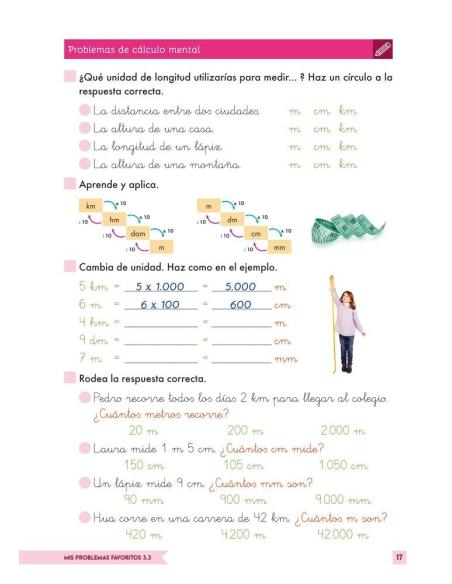 Problemas de cálculo mental
¿Qué unidad de longitud utilizarías para medir... ? Haz un círculo a la
respuesta correcta.
La distancia entre dos ciudades. m cm km
La altura de una casa. m cm km
La longitud de un lápiz. m cm km
La altura de una montaña. m cm km
Aprende y aplica.
km x 10 m x 10
: 10 hm x 10 : 10 dm x 10
: 10 dam x 10 : 10 cm x 10
: 10 m : 10 mm
Cambia de unidad. Haz como en el ejemplo.
5 km = 5 x 1.000 = 5.000 m
6 m = 6 x 100 = 600 cm
4 hm = = m
9 dm = = cm
7 m = = mm
Rodea la respuesta correcta.
Pedro recorre todos los días 2 km para llegar al colegio.
¿Cuántos metros recorre?
20 m 200 m 2.000 m
Laura mide 1 m 5 cm. ¿Cuántos cm mide?
150 cm 105 cm 1.050 cm
Un lápiz mide 9 cm. ¿Cuántos mm son?
90 mm 900 mm 9.000 mm
Hua corre en una carrera de 42 km. ¿Cuántos m son?
420 m 4.200 m 42.000 m
MIS PROBLEMAS FAVORITOS 3.3 17